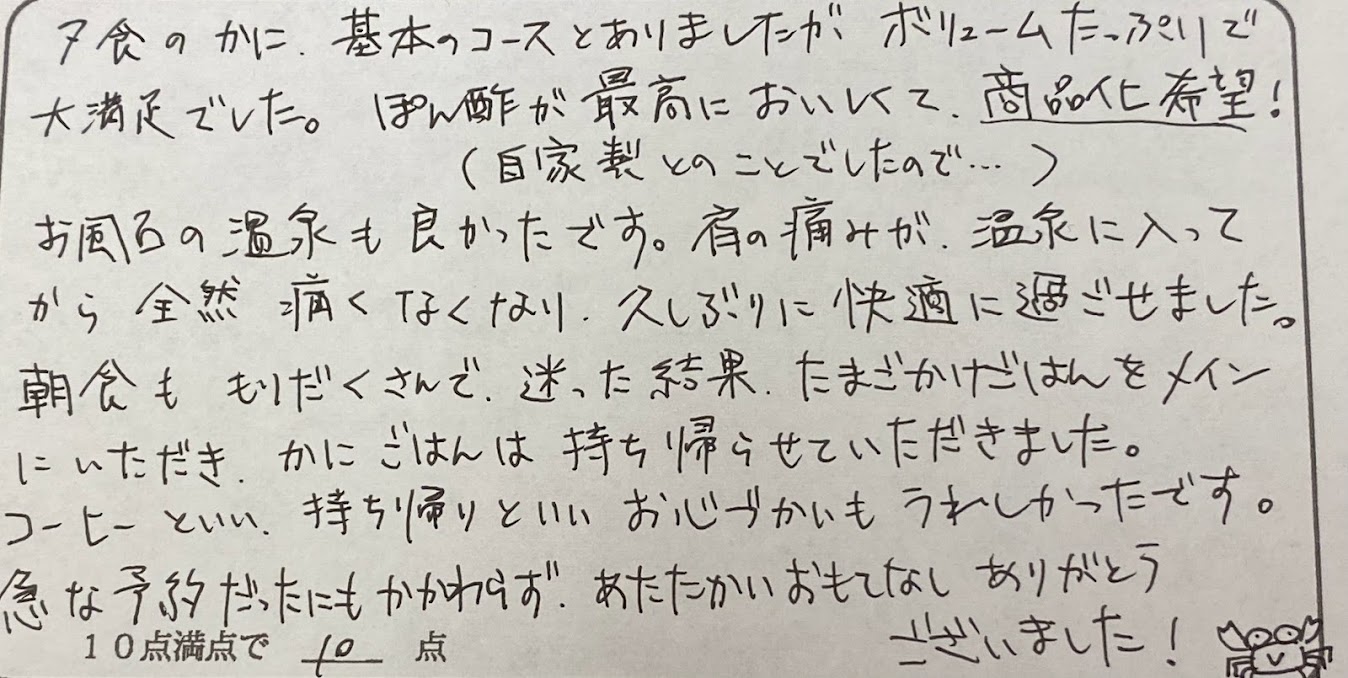 夕食のかに、基本のコースとありましたが ボリュームたっぷりで
大満足でした。 ぽん酢が最高においしくて、商品化希望！
（自家製とのことでしたので…）
お風呂の温泉も良かったです。肩の痛みが、温泉に入って
から全然痛くなくなり、久しぶりに快適に過ごせました。
朝食も もりだくさんで、迷った結果、たまごかけごはんをメイン
にいただき、かにごはんは持ち帰らせていただきました。
コーヒーといい、持ち帰りといい お心づかいも うれしかったです。
急な予約だったにもかかわらず、あたたかいおもてなし ありがとう
ございました！
10点満点で 10 点